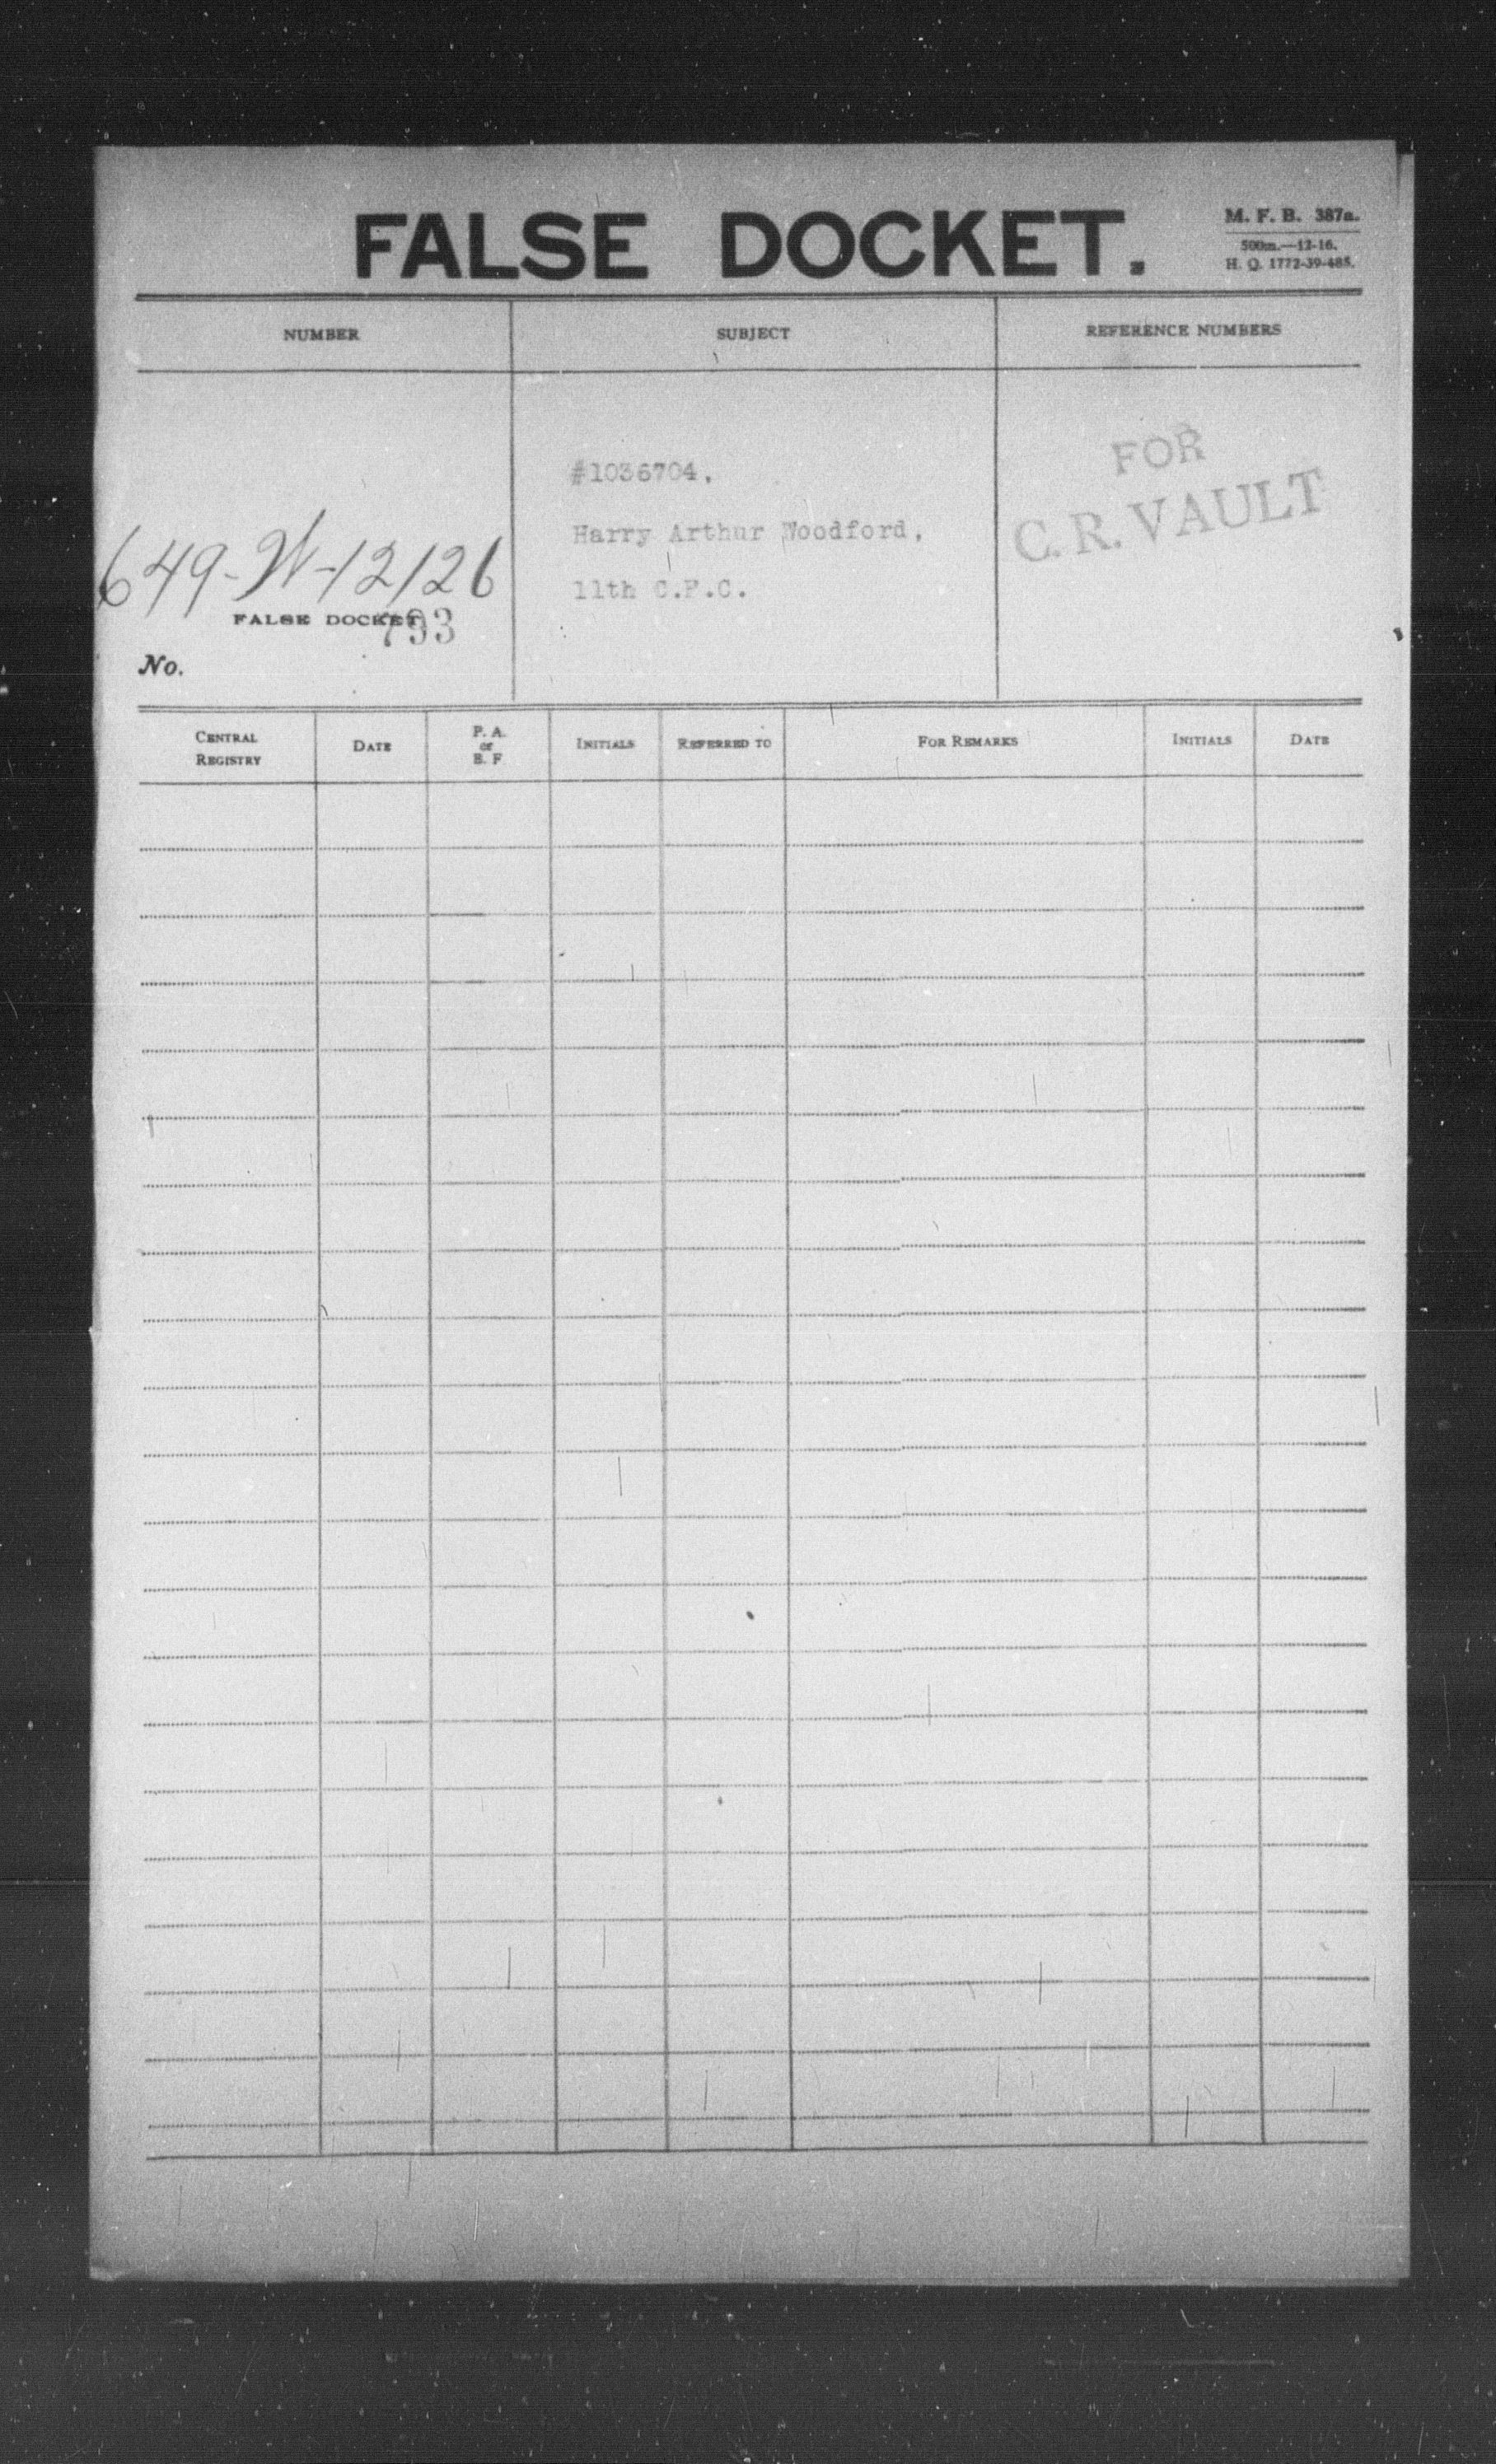 FALSE DOCKET.
M. F. B. 387a.
500m.—12-16.
H. Q. 1772-39-485.
NUMBER
SUBJECT
REFERENCE NUMBERS
#1036704.
Harry Arthur Woodford,
11th C.F.C.
FOR
C.R. VAULT
649-W-12126
FALSE DOCKET
793
No.
CENTRAL REGISTRY
DATE
P. A.
or
B. F
INITIALS
REFERRED TO
FOR REMARKS
INITIALS
DATE